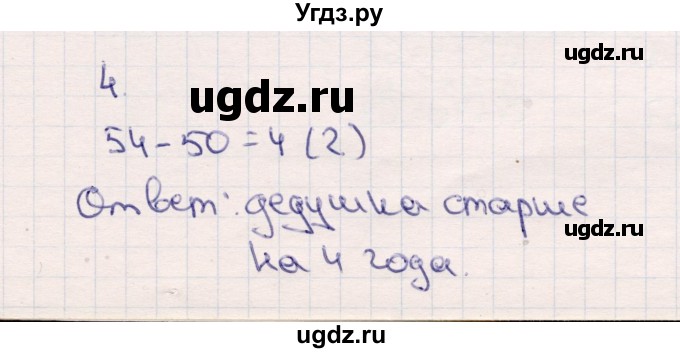 Угдз.ру
ugdz.ru
4.
ugdz.ru
54 - 50 = 4 (г)
Ответ: дедушка старше
на 4 года.
ugdz.ru
ugdz.ru